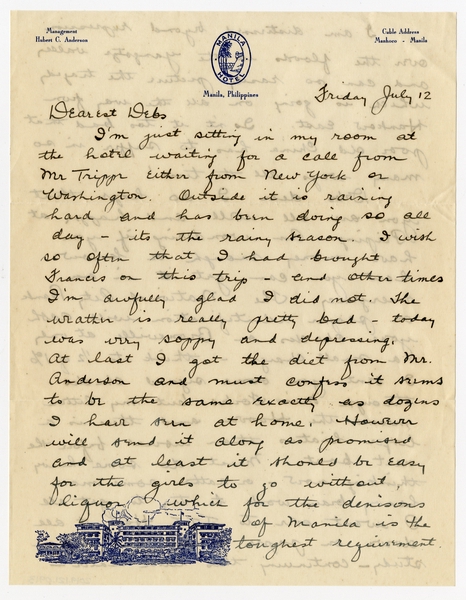 Management
Hubert C. Anderson
MANILA
HOTEL
Manila, Philippines
Cable Address
Manhoco - Manila
Friday July 12
Dearest Debs
I'm just sitting in my room at
the hotel waiting for a call from
Mr Trippe either from New York or
Washington. Outside it is raining
hard and has been doing so all
day - its the rainy season. I wish
so often that I had brought
Francis on this trip - and other times
I'm awfully glad I did not. The
weather is really pretty bad - today
was very soppy and depressing.
At last I got the diet from Mr.
Anderson and must confess it seems
to be the same exactly as dozens
I have seen at home. However
will send it along as promised
and at least it should be easy
for the girls to go without
liquor which for the denisons
of Manila is the
toughest requirement